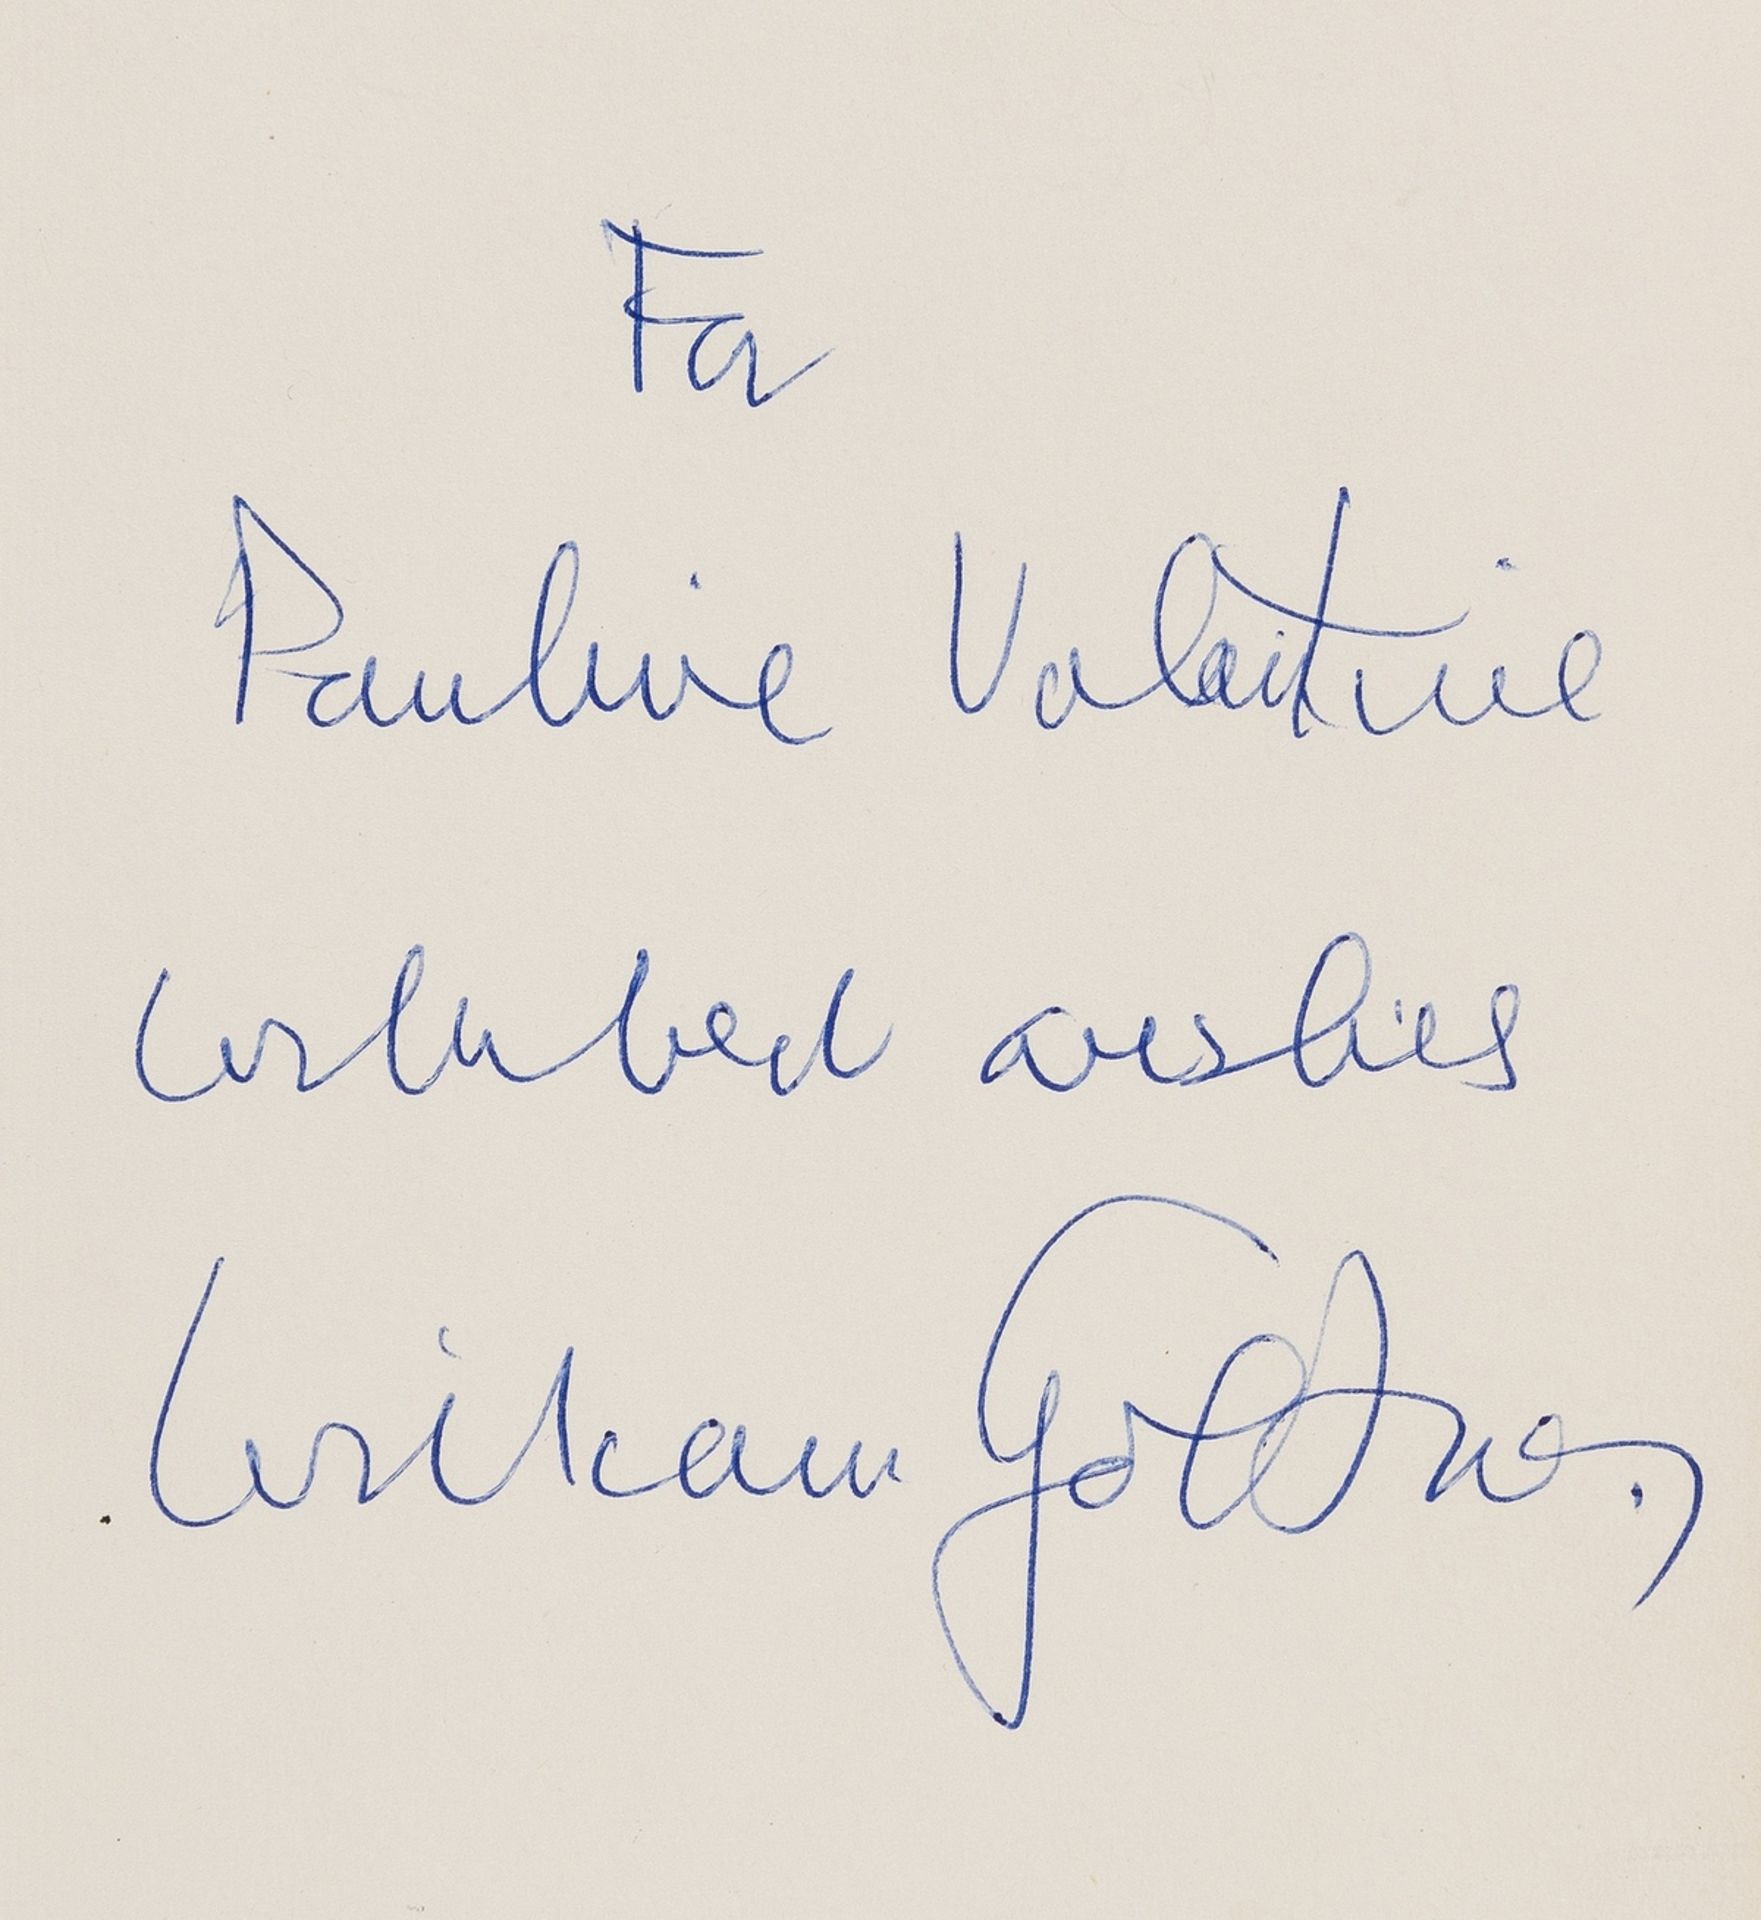 For
Pauline Valentine
with best wishes
William Golding